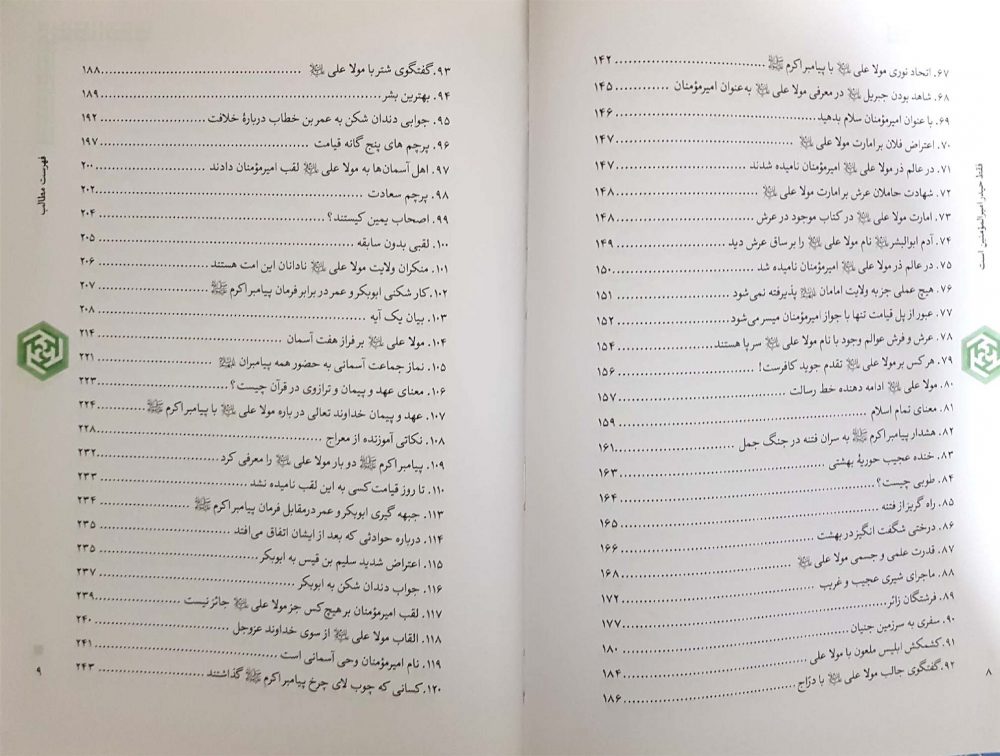 فقط حیدر امیرالمؤمنین است
۶۷. اتحاد نوری مولا علی ﷷ با پیامبر اکرم ﷺ ........ ۱۴۲
۶۸. شاهد بودن جبریل ﷷ در معرفی مولا علی ﷷ به‌عنوان امیرمؤمنان ........ ۱۴۵
۶۹. با عنوان امیرمؤمنان سلام بدهید ........ ۱۴۶
۷۰. اعتراض فلان بر امارت مولا علی ﷷ ........ ۱۴۷
۷۱. در عالم ذر مولا علی ﷷ امیرمؤمنان نامیده شدند ........ ۱۴۷
۷۲. شهادت حاملان عرش بر امارت مولا علی ﷷ ........ ۱۴۸
۷۳. امارت مولا علی ﷷ در کتاب موجود در عرش ........ ۱۴۸
۷۴. آدم ابوالبشر ﷷ نام مولا علی ﷷ را بر ساق عرش دید ........ ۱۴۹
۷۵. در عالم ذر مولا علی ﷷ امیرمؤمنان نامیده شد ........ ۱۵۰
۷۶. هیچ عملی جز به ولایت امامان ﷷ پذیرفته نمی‌شود ........ ۱۵۱
۷۷. عبور از پل قیامت تنها با جواز امیرمؤمنان میسر می‌شود ........ ۱۵۲
۷۸. عرش و فرش عوالم وجود با نام مولا علی ﷷ سرپا هستند ........ ۱۵۴
۷۹. هر کس بر مولا علی ﷷ تقدم جوید کافرست! ........ ۱۵۶
۸۰. مولا علی ﷷ ادامه دهنده خط رسالت ........ ۱۵۷
۸۱. معنای تمام اسلام ........ ۱۵۹
۸۲. هشدار پیامبر اکرم ﷺ به سران فتنه در جنگ جمل ........ ۱۶۱
۸۳. خنده عجیب حوریۀ بهشتی ........ ۱۶۳
۸۴. طوبی چیست؟ ........ ۱۶۴
۸۵. راه گریز از فتنه ........ ۱۶۵
۸۶. درختی شگفت انگیز در بهشت ........ ۱۶۶
۸۷. قدرت علمی و جسمی مولا علی ﷷ ........ ۱۶۸
۸۸. ماجرای شیری عجیب و غریب ........ ۱۷۲
۸۹. فرشتگان زائر ........ ۱۷۷
۹۰. سفری به سرزمین جنیان ........ ۱۸۰
۹۱. کشمکش ابلیس ملعون با مولا علی ........ ۱۸۴
۹۲. گفتگوی جالب مولا علی ﷷ با درّاج ........ ۱۸۶
۸
فهرست مطالب
۹۳. گفتگوی شتر با مولا علی ﷷ ........ ۱۸۸
۹۴. بهترین بشر ........ ۱۸۹
۹۵. جوابی دندان شکن به عمر بن خطاب دربارۀ خلافت ........ ۱۹۲
۹۶. پرچم های پنج گانه قیامت ........ ۱۹۷
۹۷. اهل آسمان‌ها به مولا علی ﷷ لقب امیرمؤمنان دادند ........ ۲۰۰
۹۸. پرچم سعادت ........ ۲۰۲
۹۹. اصحاب یمین کیستند؟ ........ ۲۰۴
۱۰۰. لقبی بدون سابقه ........ ۲۰۵
۱۰۱. منکران ولایت مولا علی ﷷ نادانان این امت هستند ........ ۲۰۶
۱۰۲. کار شکنی ابوبکر و عمر در برابر فرمان پیامبر اکرم ﷺ ........ ۲۰۷
۱۰۳. بیان یک آیه ........ ۲۰۸
۱۰۴. مولا علی ﷷ بر فراز هفت آسمان ........ ۲۱۴
۱۰۵. نماز جماعت آسمانی به حضور همه پیامبران ﷷ ........ ۲۲۱
۱۰۶. معنای عهد و پیمان و ترازوی در قرآن چیست؟ ........ ۲۲۳
۱۰۷. عهد و پیمان خداوند تعالی در باره مولا علی ﷷ با پیامبر اکرم ﷺ ........ ۲۲۴
۱۰۸. نکاتی آموزنده از معراج ........ ۲۲۸
۱۰۹. پیامبر اکرم ﷺ دو بار مولا علی ﷷ را معرفی کرد ........ ۲۳۲
۱۱۰. تا روز قیامت کسی به این لقب نامیده نشد ........ ۲۳۳
۱۱۳. جبهه گیری ابوبکر و عمر در مقابل فرمان پیامبر اکرم ﷺ ........ ۲۳۴
۱۱۴. درباره حوادثی که بعد از ایشان اتفاق می‌افتد ........ ۲۳۵
۱۱۵. اعتراض شدید سلیم بن قیس به ابوبکر ........ ۲۳۵
۱۱۶. جواب دندان شکن به ابوبکر ........ ۲۳۷
۱۱۷. لقب امیرمؤمنان بر هیچ کس جز مولا علی ﷷ جائز نیست ........ ۲۳۹
۱۱۸. القاب مولا علی ﷷ از سوی خداوند عزوجل ........ ۲۴۰
۱۱۹. نام امیرمؤمنان وحی آسمانی است ........ ۲۴۱
۱۲۰. کسانی که چوب لای چرخ پیامبر اکرم ﷺ گذاشتند ........ ۲۴۳
۹